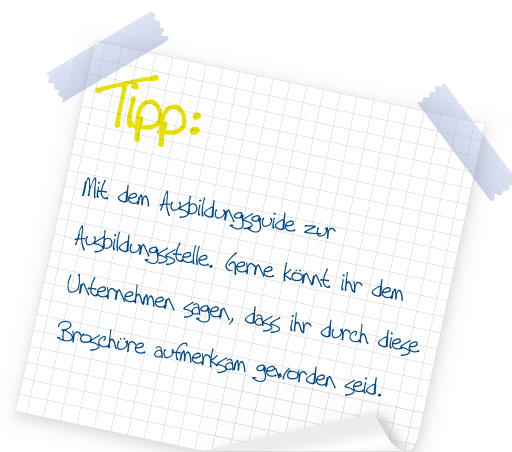 Tipp:
Mit dem Ausbildungsguide zur
Ausbildungsstelle. Gerne könnt ihr dem
Unternehmen sagen, dass ihr durch diese
Broschüre aufmerksam geworden seid.